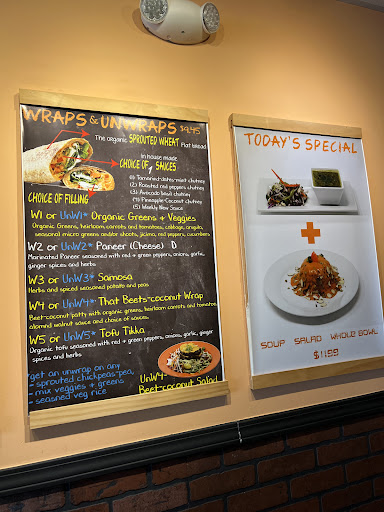 WRAPS & UNWRAPS $9.45
The organic SPROUTED WHEAT Flat bread
In house made
CHOICE of SAUCES
(1) Tamarind-dates-mint chutney
(2) Roasted red peppers chutney
(3) Avocado basil chutney
(4) Pineapple-Coconut chutney
(5) Weekly New Sauce
CHOICE OF FILLING
W1 or UnW1* Organic Greens & Veggies
Organic Greens, heirloom, carrots and tomatoes, cabbage, arugula,
seasonal micro greens and/or shoots, jicama, red peppers, cucumbers
W2 or UnW2* Paneer (Cheese) D
Marinated Paneer seasoned with red + green peppers, onions, garlic,
ginger spices and herbs
W3 or UnW3* Samosa
Herbs and spiced seasoned potato and peas
W4 or UnW4* That Beets-coconut Wrap
Beet-coconut patty with organic greens, heirloom carrots and tomatoes,
almond walnut sauce and choice of sauces
W5 or UnW5* Tofu Tikka
Organic tofu seasoned with red + green peppers, onions, garlic, ginger
spices and herbs
*get an unwrap on any
- sprouted chickpeas-pea,
- mix veggies + greens
- seasned veg rice
UnW4-
Beet-coconut Salad
TODAY'S SPECIAL
+
SOUP SALAD WHOLE BOWL
$11.99